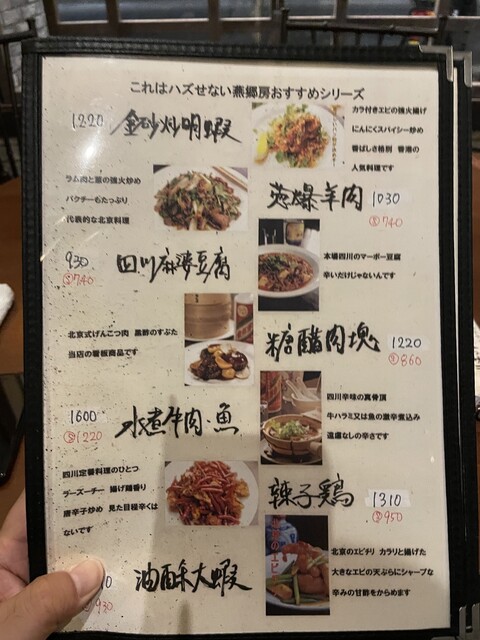 これはハズせない燕郷房おすすめシリーズ
1220 金砂炒明蝦
カラ付きエビの強火揚げ
にんにくスパイシー炒め
香ばしさ格別 香港の
人気料理です
ラム肉と葱の強火炒め
パクチーもたっぷり
代表的な北京料理
葱爆羊肉 1030
Ⓢ740
930 四川麻婆豆腐
Ⓢ740
本場四川のマーボー豆腐
辛いだけじゃないんです
北京式げんこつ肉 黒酢のすぶた
当店の看板商品です
糖醋肉塊 1220
Ⓢ860
1600 水煮牛肉・魚
Ⓢ1220
四川辛味の真骨頂
牛ハラミ又は魚の激辛煮込み
遠慮なしの辛さです
四川定番料理のひとつ
ラーズーチー 揚げ鶏香り
唐辛子炒め 見た目程辛くは
ないです
辣子鶏 1310
Ⓢ950
油酥大蝦
930
北京のエビチリ カラリと揚げた
大きなエビの天ぷらにシャープな
辛みの甘酢をからめます